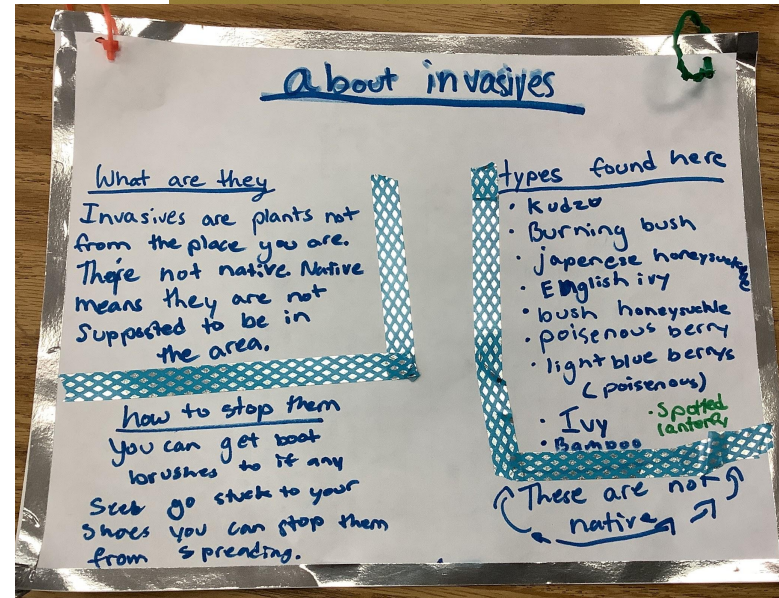 about invasives
What are they
Invasives are plants not
from the place you are.
There not native. Native
means they are not
Supposted to be in
the area.
how to stop them
you can get boot
brushes to if any
Seeb go stuck to your
Shoes you can stop them
from spreading.
types found here
• Kudzu
• Burning bush
• japenese honeysuckle
• English ivy
• bush honeysuckle
• poisenous berry
• light blue berrys
(poisenous)
• Ivy
• Spotted
lantern
• Bamboo
These are not
native